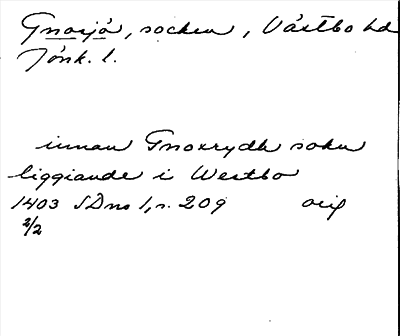 Gnosjö, socken, Västbo hd
Jönk. l.
innan Gnoxrydh sokn
liggiande i Westbo
1403 SDns 1, s. 209 orig
2/2